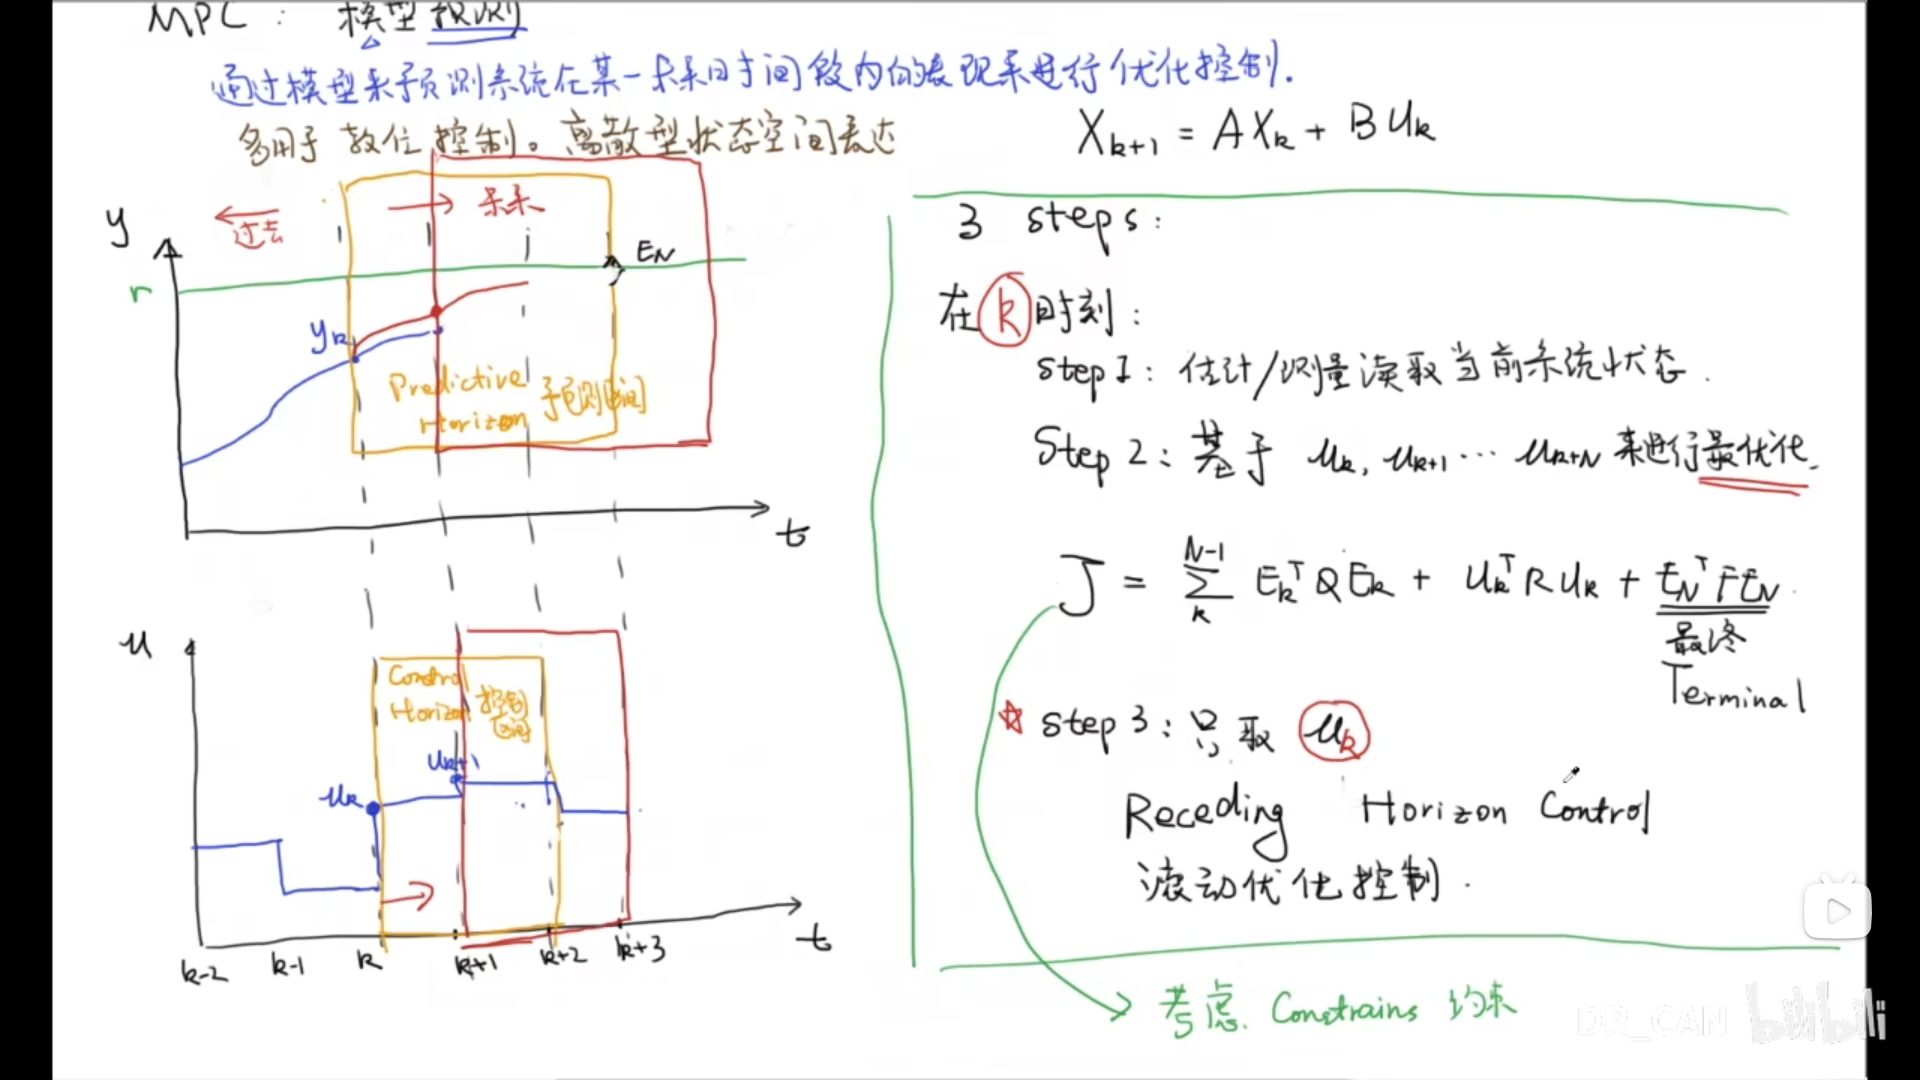 MPC : 模型预测
通过模型来预测系统在某一未来时间段内的表现来进行优化控制.
多用于 数位 控制。离散型状态空间表达
X_{k+1} = AX_k + BU_k
y
过去
未来
r
E_N
y_k
Predictive
Horizon 预测区间
t
u
Control
Horizon 控制
区间
u_k
u_{k+1}
k-2 k-1 k k+1 k+2 k+3
t
3 steps:
在 k 时刻:
step 1: 估计/测量读取当前系统状态.
Step 2: 基于 u_k, u_{k+1} ... u_{k+N} 来进行最优化.
J = \sum_k^{N-1} E_k^T Q E_k + U_k^T R U_k + E_N^T F E_N
最终
Terminal
☆ step 3: 只取 u_k
Receding Horizon Control
滚动优化控制.
考虑. Constrains 约束
DR_CAN bilibili